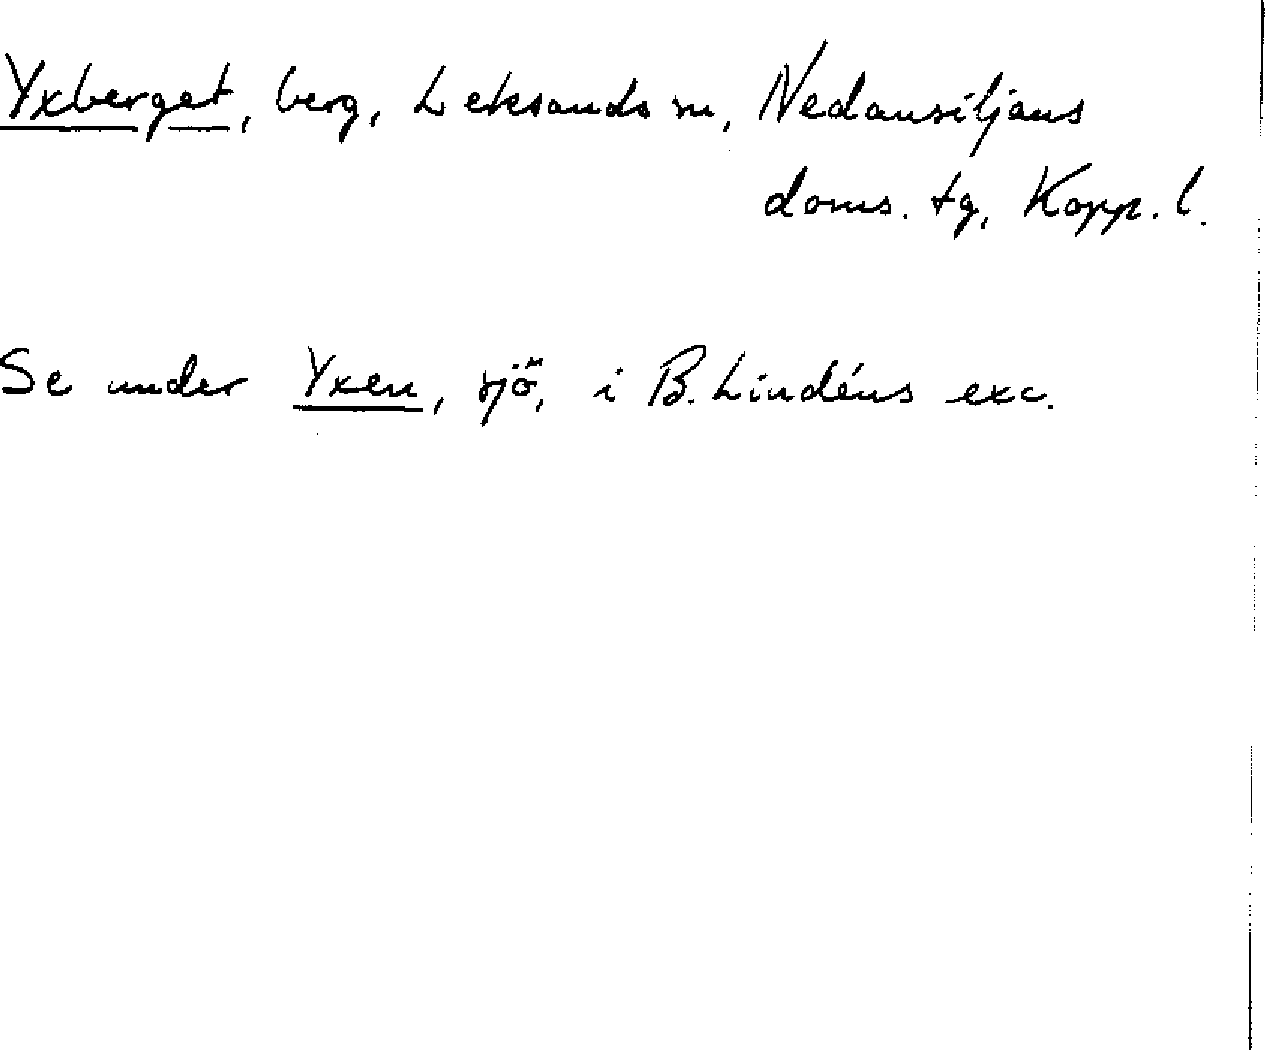 Yxberget, berg, Leksands sn, Nedansiljans
doms. tg, Kopp. l.
Se under Yxen, sjö, i B. Lindéns exc.